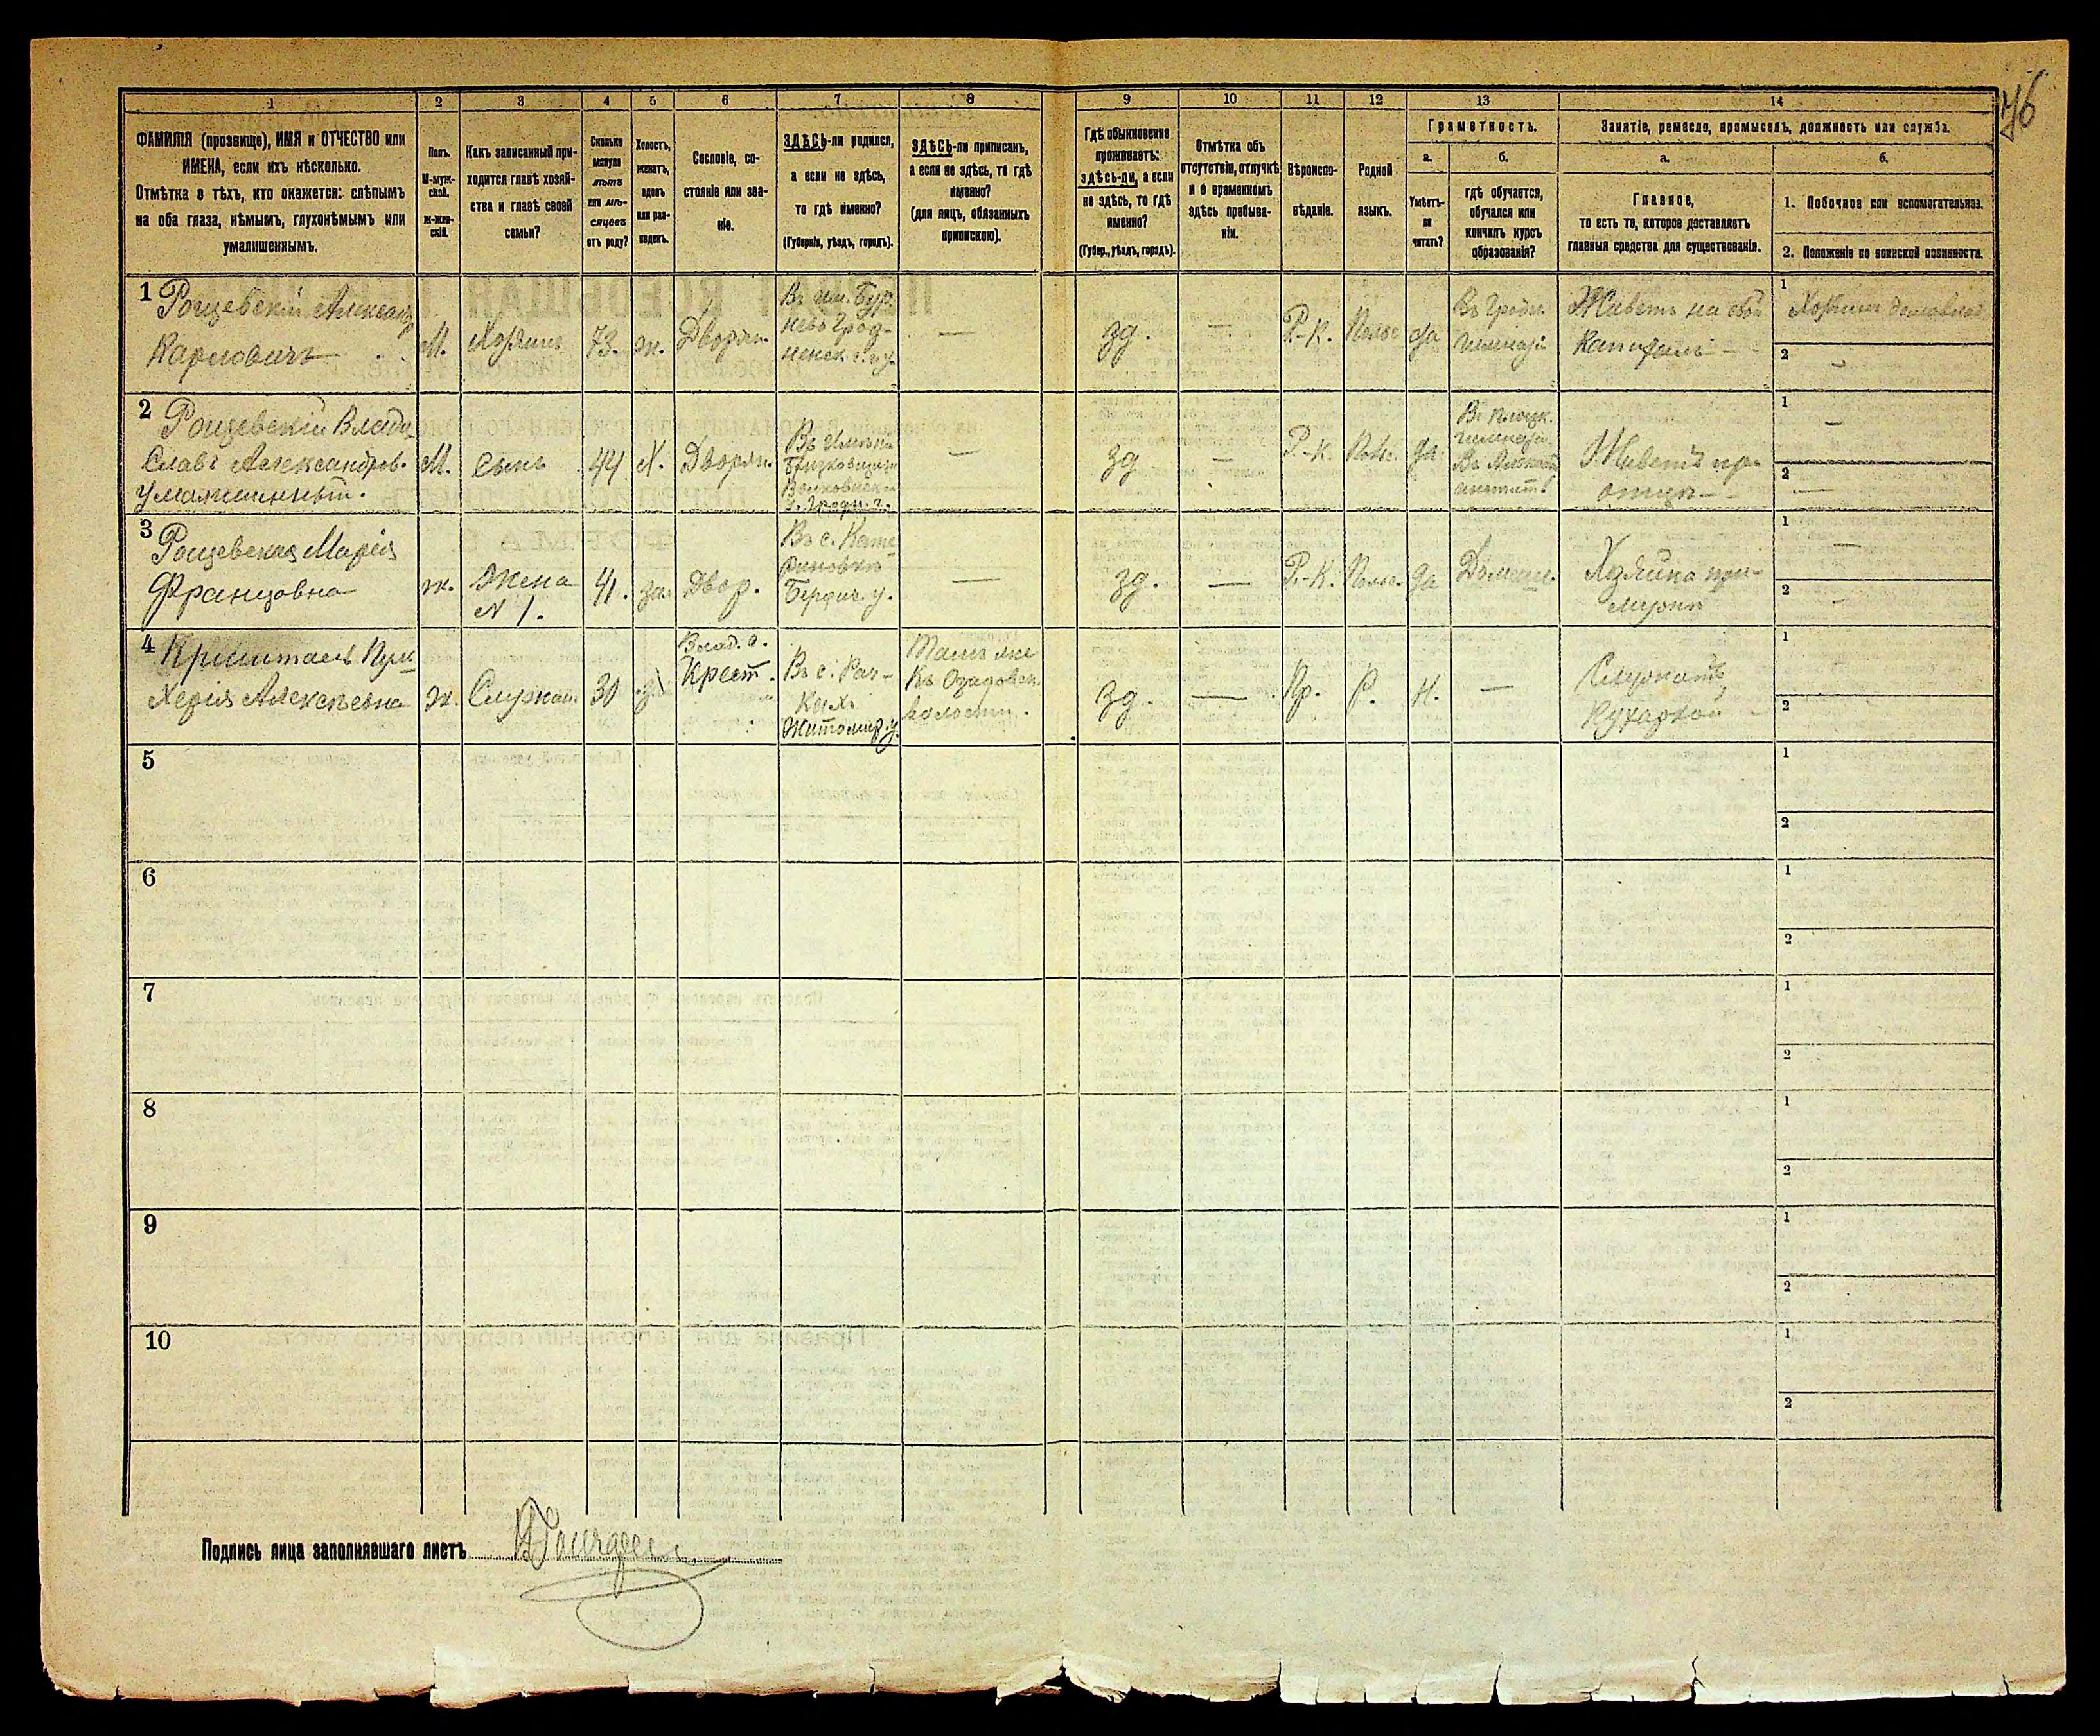 76
1 2 3 4 5 6 7 8 9 10 11 12 13 14
ФАМИЛІЯ (прозвище), ИМЯ и ОТЧЕСТВО или
ИМЕНА, если ихъ нѣсколько.
Отмѣтка о тѣхъ, кто окажется: слѣпымъ
на оба глаза, нѣмымъ, глухонѣмымъ или
умалишеннымъ.
Полъ.
М-муж-
ской.
ж-жен-
скій.
Какъ записанный при-
ходится главѣ хозяй-
ства и главѣ своей
семьи?
Сколько
минуло
лѣтъ
или мѣ-
сяцевъ
отъ роду?
Холостъ,
женатъ,
вдовъ
или раз-
веденъ.
Сословіе, со-
стояніе или зва-
ніе.
ЗДѢСЬ-ли родился,
а если не здѣсь,
то гдѣ именно?
(Губернія, уѣздъ, городъ).
ЗДѢСЬ-ли приписанъ,
а если не здѣсь, то гдѣ
именно?
(для лицъ, обязанныхъ
припискою).
Гдѣ обыкновенно
проживаетъ:
здѣсь-ли, а если
не здѣсь, то гдѣ
именно?
(Губер., уѣздъ, городъ).
Отмѣтка объ
отсутствіи, отлучкѣ
и о временномъ
здѣсь пребыва-
ніи.
Вѣроиспо-
вѣданіе.
Родной
языкъ.
Грамотность.
а.
Умѣетъ-
ли
читать?
б.
гдѣ обучается,
обучался или
кончилъ курсъ
образованія?
Занятіе, ремесло, промыселъ, должность или служба.
а.
Главное,
то есть то, которое доставляетъ
главныя средства для существованія.
б.
1. Побочное или вспомогательное.
2. Положеніе по воинской повинности.
1 Рощевскій Александ
Карповичъ
М.
Хозяинъ
73.
ж.
Дворян.
Въ им. Бур.
нево Грод-
ненск. г. и у.
—
зд.
—
Р.-К.
Польс.
да
Въ Гродн.
гимназіи
Живетъ на свой
капиталъ
1 Хозяинъ домовлад.
2 —
2 Рощевскій Влади
славъ Александров.
умалишенный.
М.
Сынъ
44
Х.
Дворян.
Въ имѣніи
Волковыскаго
у. Гродн. г.
—
зд
—
Р.-К.
Поль.
да.
Въ Плоцк.
гимназіи
Живетъ при
отцѣ —
1 —
2 —
3 Рощевская Марія
Францовна
ж.
Жена
N 1.
41.
за.
Двор.
Въ с. Кате
риновкѣ
Бердич. у.
—
зд.
—
Р.-К.
Польс.
да
Домаш.
Хозяйка при
мужѣ
1 —
2 —
4 Криштаель Пуль
херія Алексѣевна
ж.
Служан.
30
Влад. с.
Крест.
Въ с. Рач-
кихъ
Житомир. у.
Тамъ же
Въ Озадовск.
волости.
зд.
—
Пр.
Р.
Н.
—
Служитъ
Кухаркой
1
2
5 1
2
6 1
2
7 1
2
8 1
2
9 1
2
10 1
2
Подпись лица заполнявшаго листъ